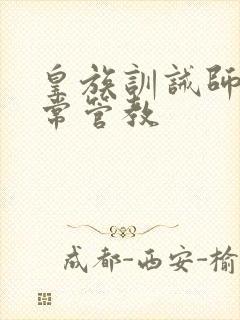 皇族訓誡師
常管教
成都-西安-榆